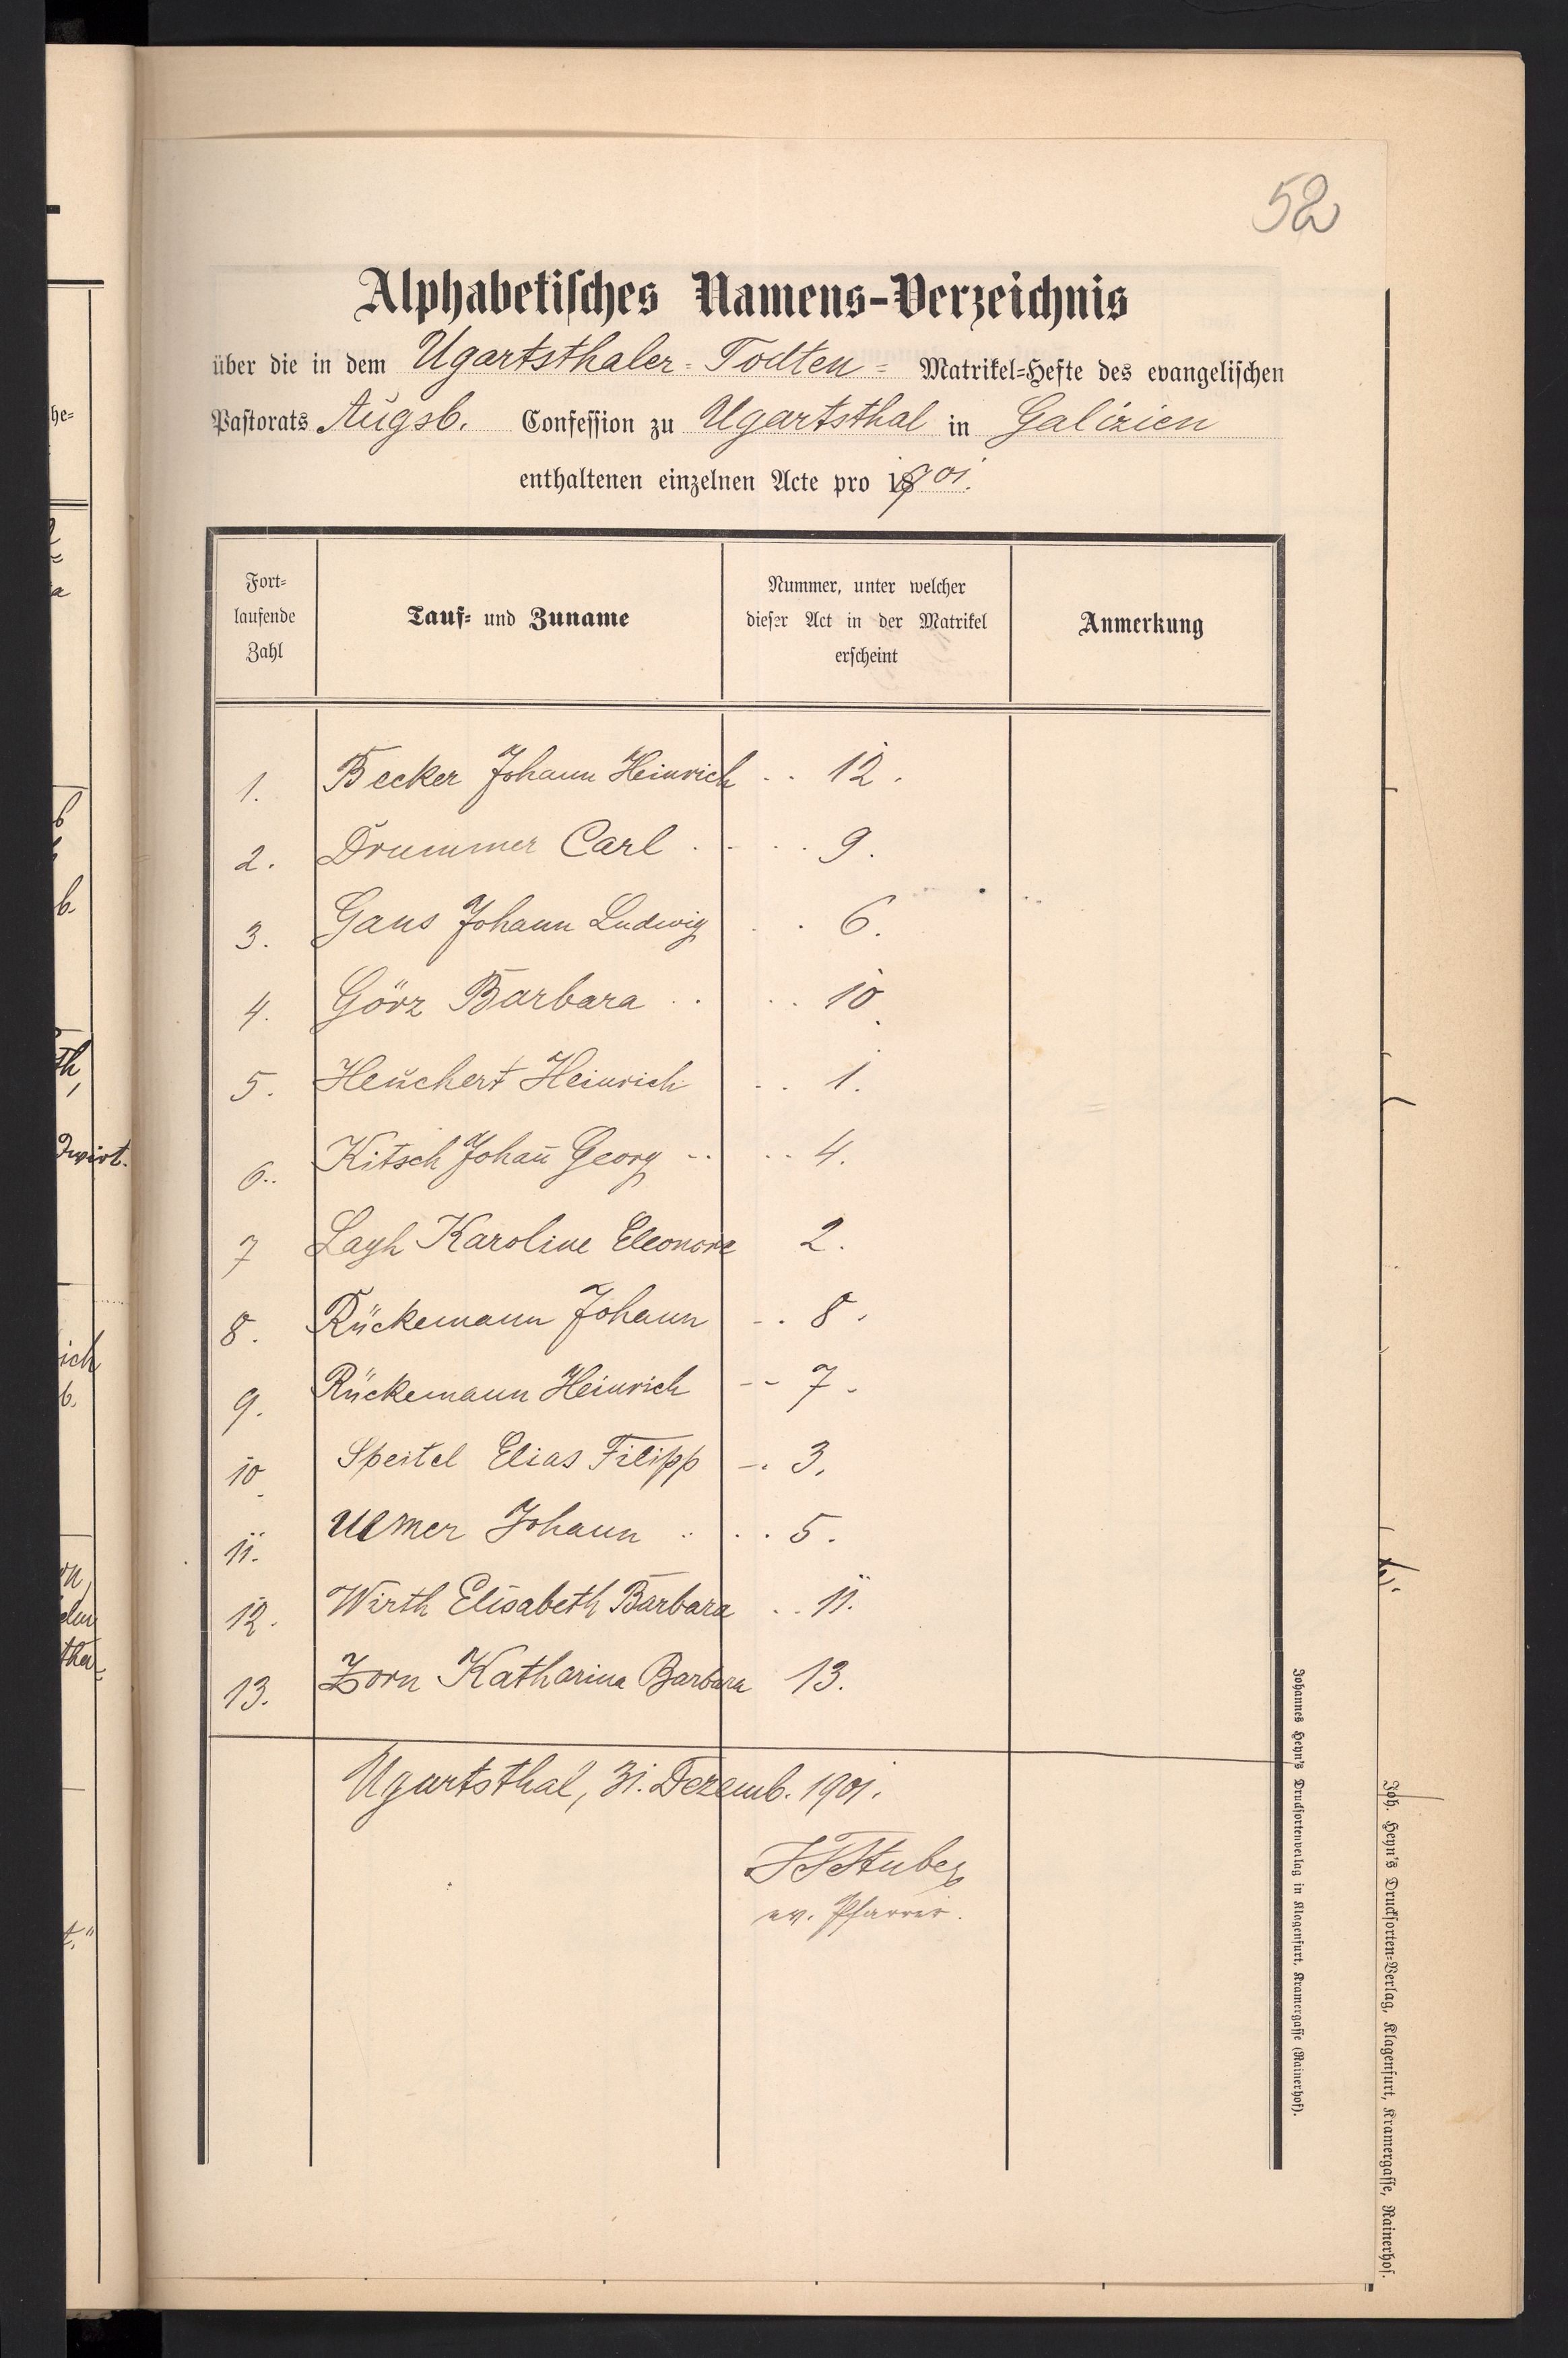 52
Alphabetisches Namens-Verzeichnis
über die in dem Ugartsthaler-Todten- Matrikel-Hefte des evangelischen
Pastorats Augsb. Confession zu Ugartsthal in Galizien
enthaltenen einzelnen Acte pro 1901.
Fort-
laufende
Zahl
Tauf- und Zuname
Nummer, unter welcher
dieser Act in der Matrikel
erscheint
Anmerkung
1. Becker Johann Heinrich .. 12.
2. Drummer Carl . - .. 9.
3. Gans Johann Ludwig . . 6.
4. Görz Barbara .. .. 10.
5. Heuchert Heinrich .. 1.
6.. Kitsch Johañ Georg -- .. 4.
7 Layh Karoline Eleonore 2.
8. Rückemann Johann -. 8.
9. Rückemann Heinrich -- 7.
10. Speitel Elias Filipp -. 3.
11. Ulmer Johann .. .. 5.
12. Wirth Elisabeth Barbara .. 11.
13. Zorn Katharina Barbara 13.
Ugartsthal, 31. Dezemb. 1901.
Stuber
ev. Pfarrer.
Johannes Heyn's Drucksortenverlag in Klagenfurt, Kramergasse (Rainerhof).
Joh. Heyn's Drucksorten-Verlag, Klagenfurt, Kramergasse, Rainerhof.
he-
b.
th,
dwirt.
ich
b.